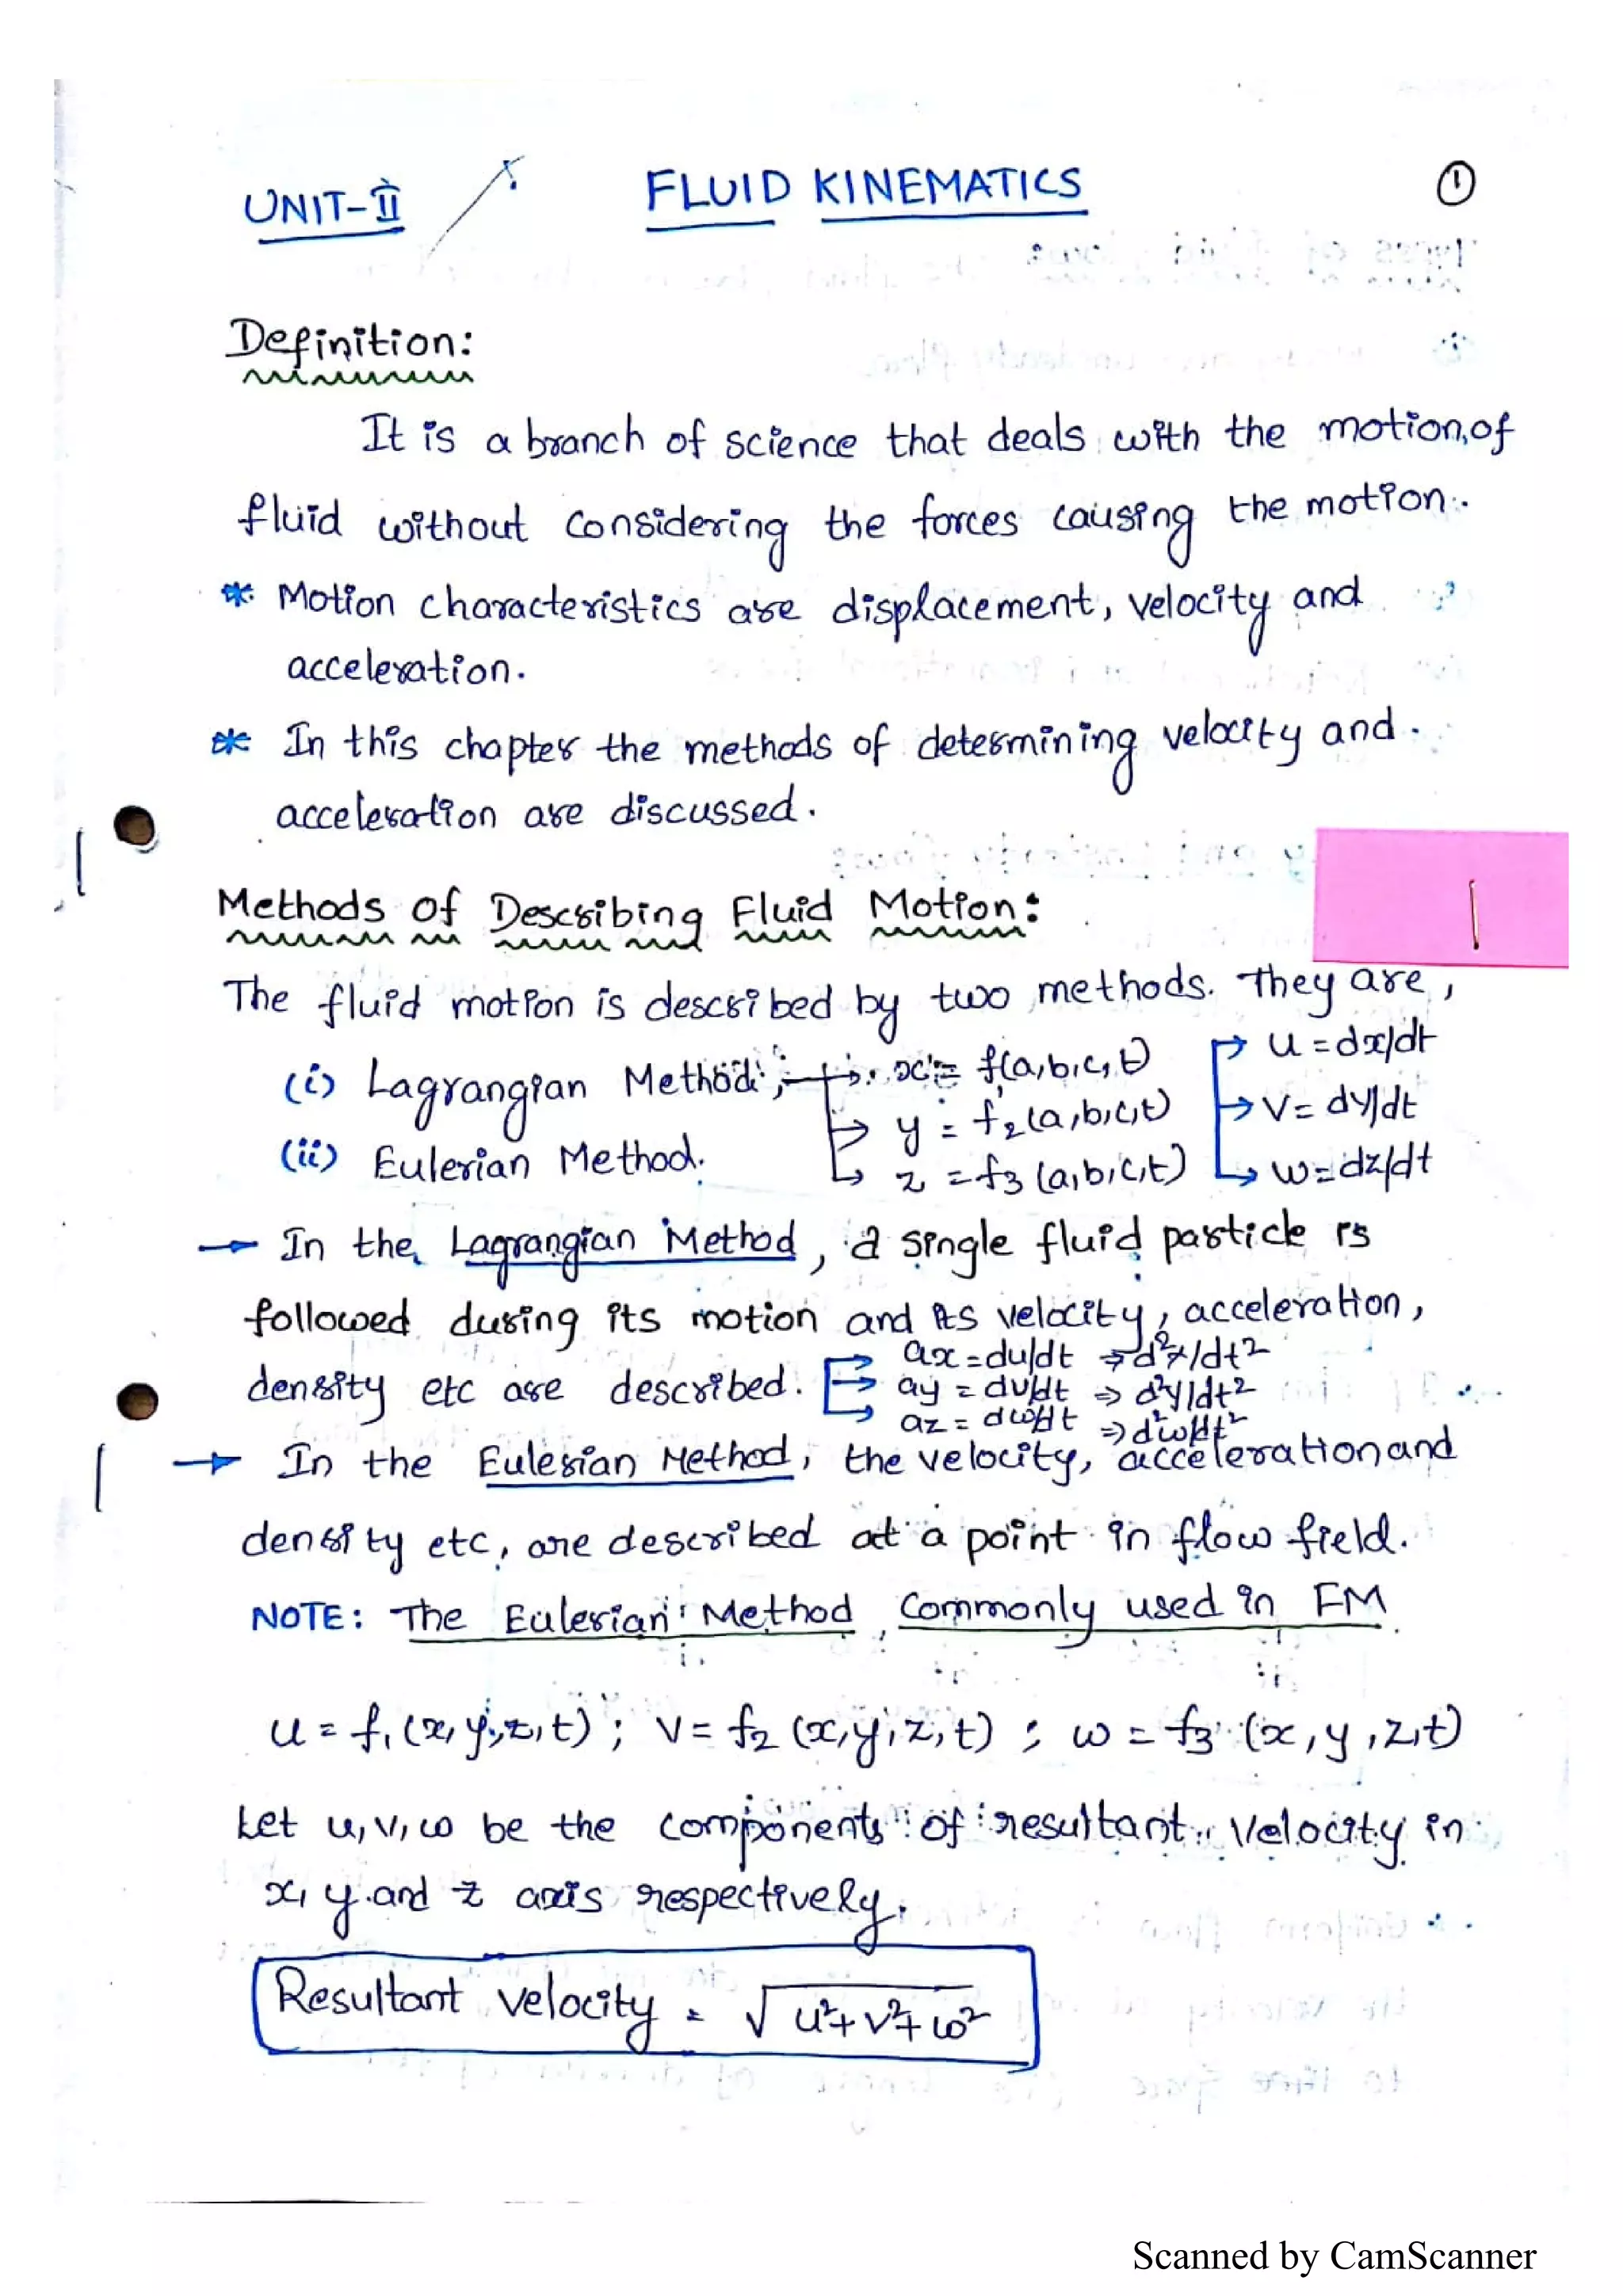 UNIT-II FLUID KINEMATICS 1
Definition:
It is a branch of science that deals with the motion of
fluid without considering the forces causing the motion.
* Motion characteristics are displacement, velocity and
acceleration.
* In this chapter the methods of determining velocity and
acceleration are discussed.
Methods of Describing Fluid Motion:
The fluid motion is described by two methods. They are,
(i) Lagrangian Method; → x = f(a,b,c,t) → u = dx/dt
→ y = f₂(a,b,c,t) → v = dy/dt
(ii) Eulerian Method. → z = f₃(a,b,c,t) → w = dz/dt
→ In the Lagrangian Method, a single fluid particle is
followed during its motion and its velocity, acceleration,
density etc are described. → ax = du/dt ⇒ d²x/dt²
→ ay = dv/dt ⇒ d²y/dt²
→ az = dw/dt ⇒ d²w/dt²
→ In the Eulerian Method, the velocity, acceleration and
density etc, are described at a point in flow field.
NOTE: The Eulerian Method Commonly used in FM
u = f₁(x,y,z,t); v = f₂(x,y,z,t); w = f₃(x,y,z,t)
Let u,v,w be the components of resultant velocity in
x, y and z axis respectively.
Resultant velocity = √u²+v²+w²
Scanned by CamScanner